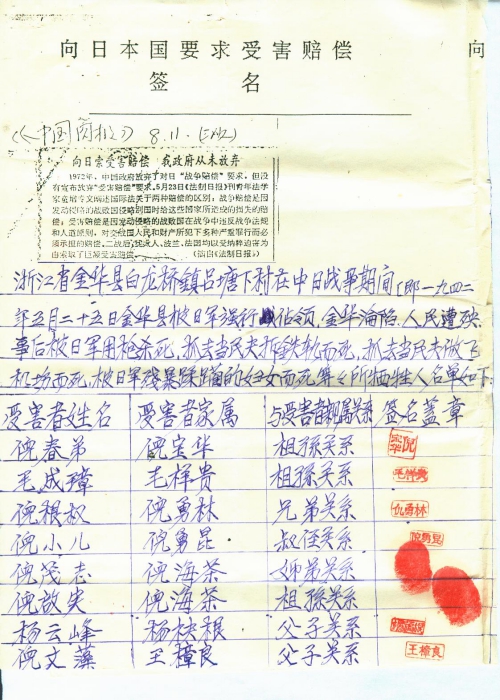 向日本国要求受害赔偿
向
签名
《中国商报》 8.11.
向日索受害赔偿 我政府从未放弃
1972年，中国政府放弃了对日“战争赔偿”要求，但没
有宣布放弃“受害赔偿”要求。5月23日《法制日报》刊青年法学
家童增专文阐述国际法关于两种赔偿的区别：战争赔偿是因
发动侵略的战败国侵略别国时给这些国家所造成的损失的赔
偿；受害赔偿是因发动侵略的战败国在战争中违反战争法规
和人道原则，对交战国人民和财产所犯下多种严重罪行而必
须承担的赔偿。二战后，犹太人、波兰、法国均以受纳粹迫害为
由索取了巨额受害赔偿。
（摘自《法制日报》）
浙江省金华县白龙桥镇吕塘下村在中日战争期间(即一九四二
年五月二十五日金华县被日军强行占领,金华沦陷,人民遭殃
事后被日军用枪杀死,抓去当民夫拆铁轨而死,抓去当民夫做飞
机场而死,被日军残暴蹂躏的妇女而死等々所牺牲人名单如下:
受害者姓名 受害者家属 与受害者亲属关系 签名盖章
倪春弟 倪宝华 祖孙关系
毛成璋 毛样贵 祖孙关系 毛样贵
倪根权 倪勇林 兄弟关系 仉勇林
倪小儿 倪勇昆 叔侄关系 倪勇昆
倪茂志 倪海茶 姉弟关系
倪故失 倪海茶 祖孫关系
杨云峰 杨林根 父子关系
倪文藻 王樟良 父子关系 王樟良